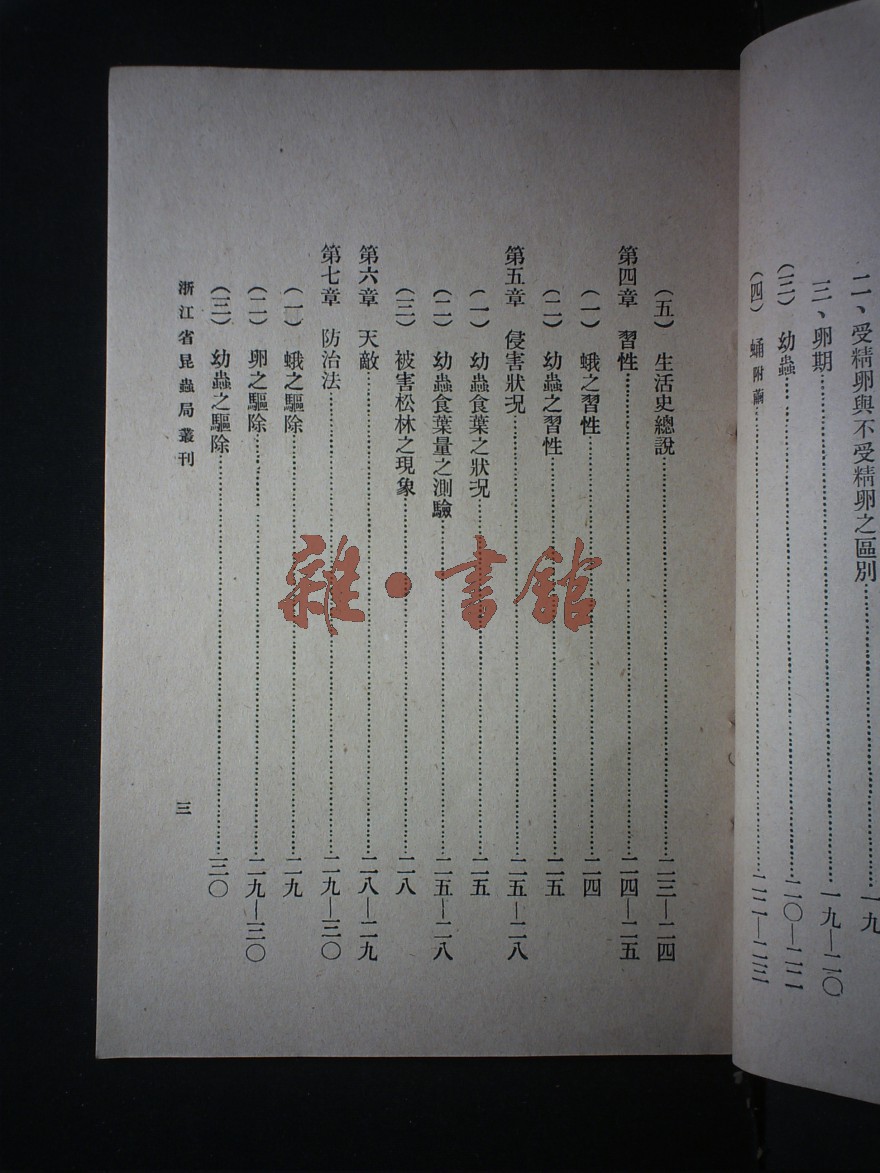 二、受精卵與不受精卵之區別……一九
三、卵期……一九—二〇
(三) 幼蟲……二〇—二二
(四) 蛹附繭……二二—二三
(五) 生活史總說……二三—二四
第四章 習性……二四—二五
(一) 蛾之習性……二四
(二) 幼蟲之習性……二五
第五章 侵害狀況……二五—二八
(一) 幼蟲食葉之狀況……二五
(二) 幼蟲食葉量之測驗……二五—二八
(三) 被害松林之現象……二八
第六章 天敵……二八—二九
第七章 防治法……二九—三〇
(一) 蛾之驅除……二九
(二) 卵之驅除……二九—三〇
(三) 幼蟲之驅除……三〇
浙江省昆蟲局叢刊 三
雜·書館